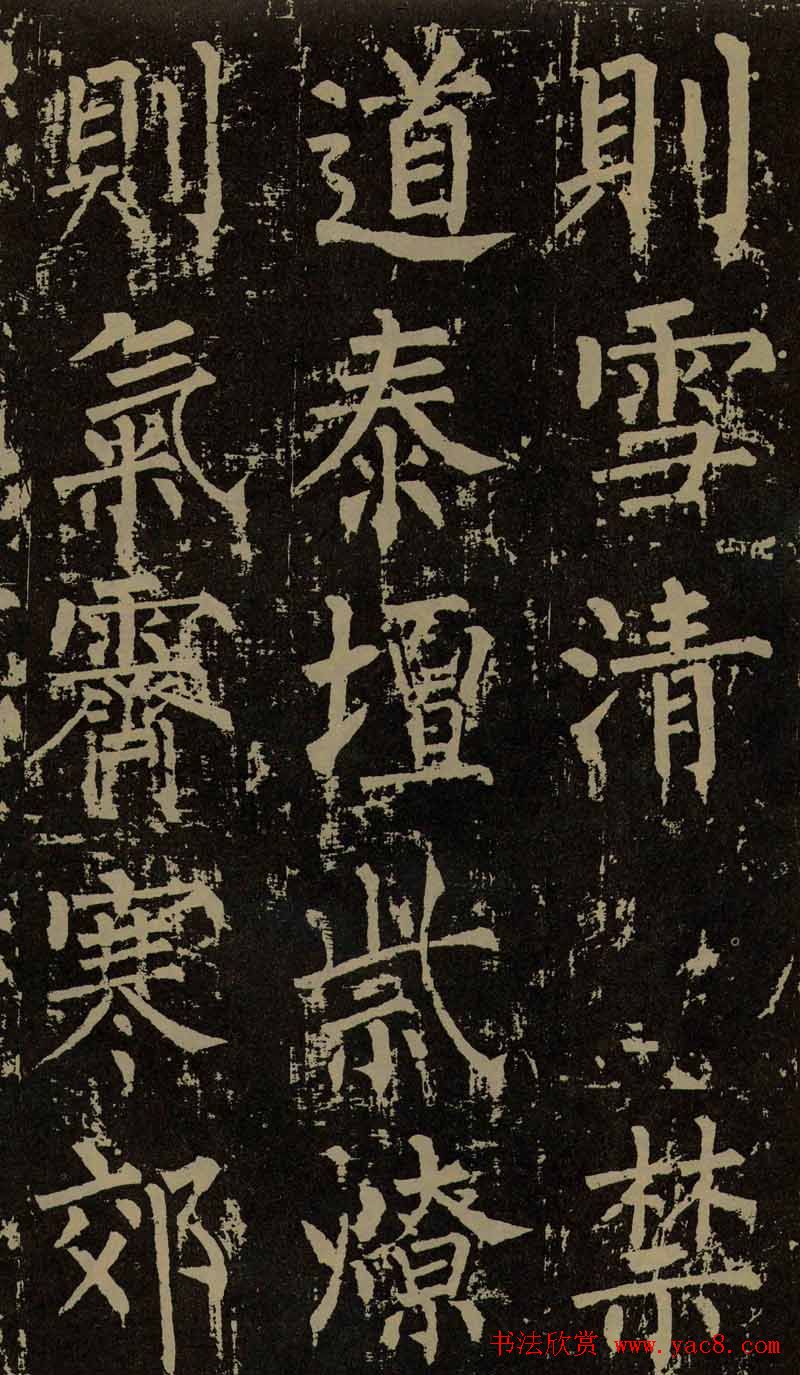 則雪清禁
道泰壇祡燎
則氣霽寒郊
书法欣赏 www.yac8.com